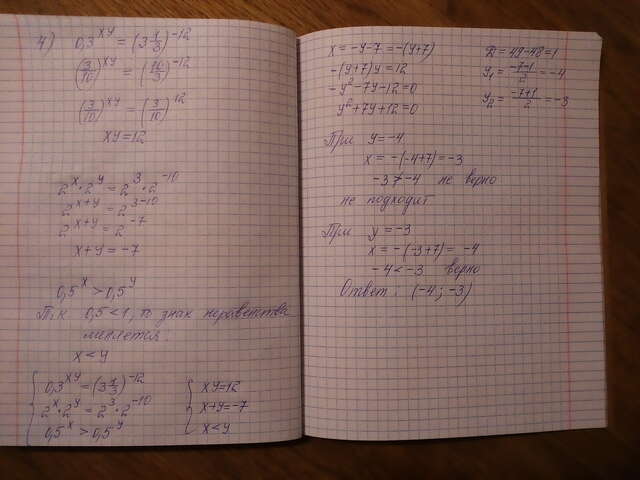 4) 0,3^xy = (3 1/3)^-12
(3/10)^xy = (10/3)^-12
(3/10)^xy = (3/10)^12
xy = 12
2^x · 2^y = 2^3 · 2^-10
2^x+y = 2^3-10
2^x+y = 2^-7
x+y = -7
0,5^x > 0,5^y
Т.к. 0,5 < 1, то знак неравенства
меняется.
x < y
{ 0,3^xy = (3 1/3)^-12
2^x · 2^y = 2^3 · 2^-10
0,5^x > 0,5^y
{ xy = 12
x+y = -7
x < y
x = -y-7 = -(y+7)
-(y+7)y = 12
-y^2 -7y -12 = 0
y^2 +7y +12 = 0
D = 49-48 = 1
y1 = (-7-1)/2 = -4
y2 = (-7+1)/2 = -3
При y = -4
x = -(-4+7) = -3
-3 < -4 не верно
не подходит
При y = -3
x = -(-3+7) = -4
-4 < -3 верно
Ответ: (-4; -3)